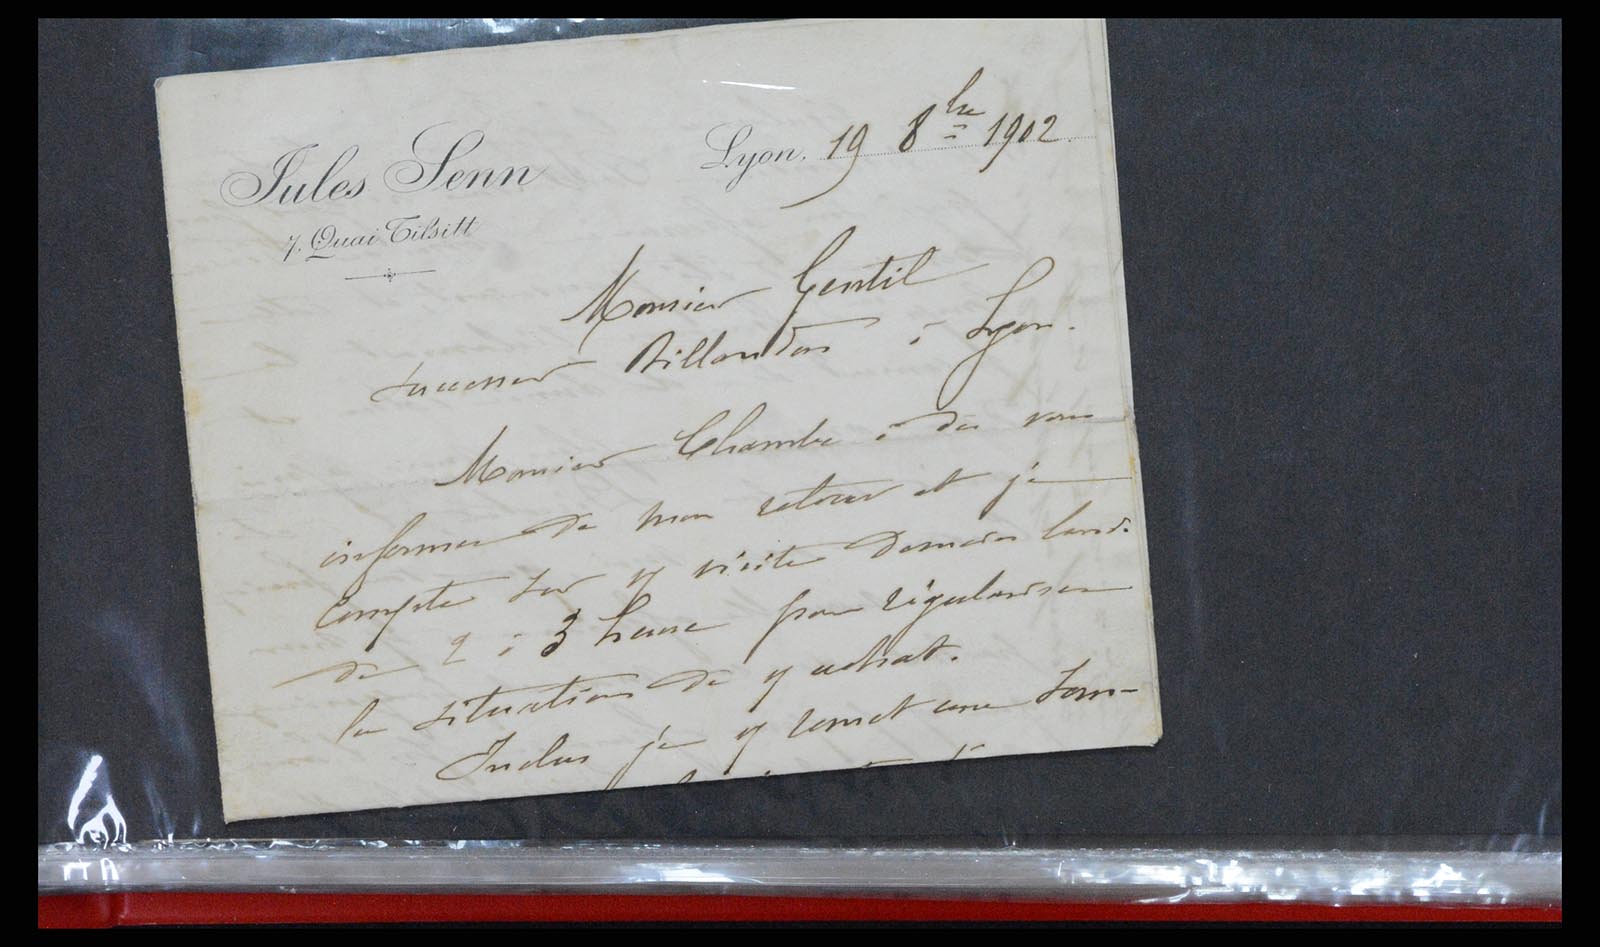 Jules Senn
7, Quai Tilsitt
Lyon, 19 8bre 1902
Monsieur Gentil
successeur à Lyon.
Monsieur Chambe a dû vous
informer de mon retour et je
compte sur v/ visite demain lundi
de 2 à 3 heure pour régulariser
la situation de v/ achat.
Inclus je v/ remet une